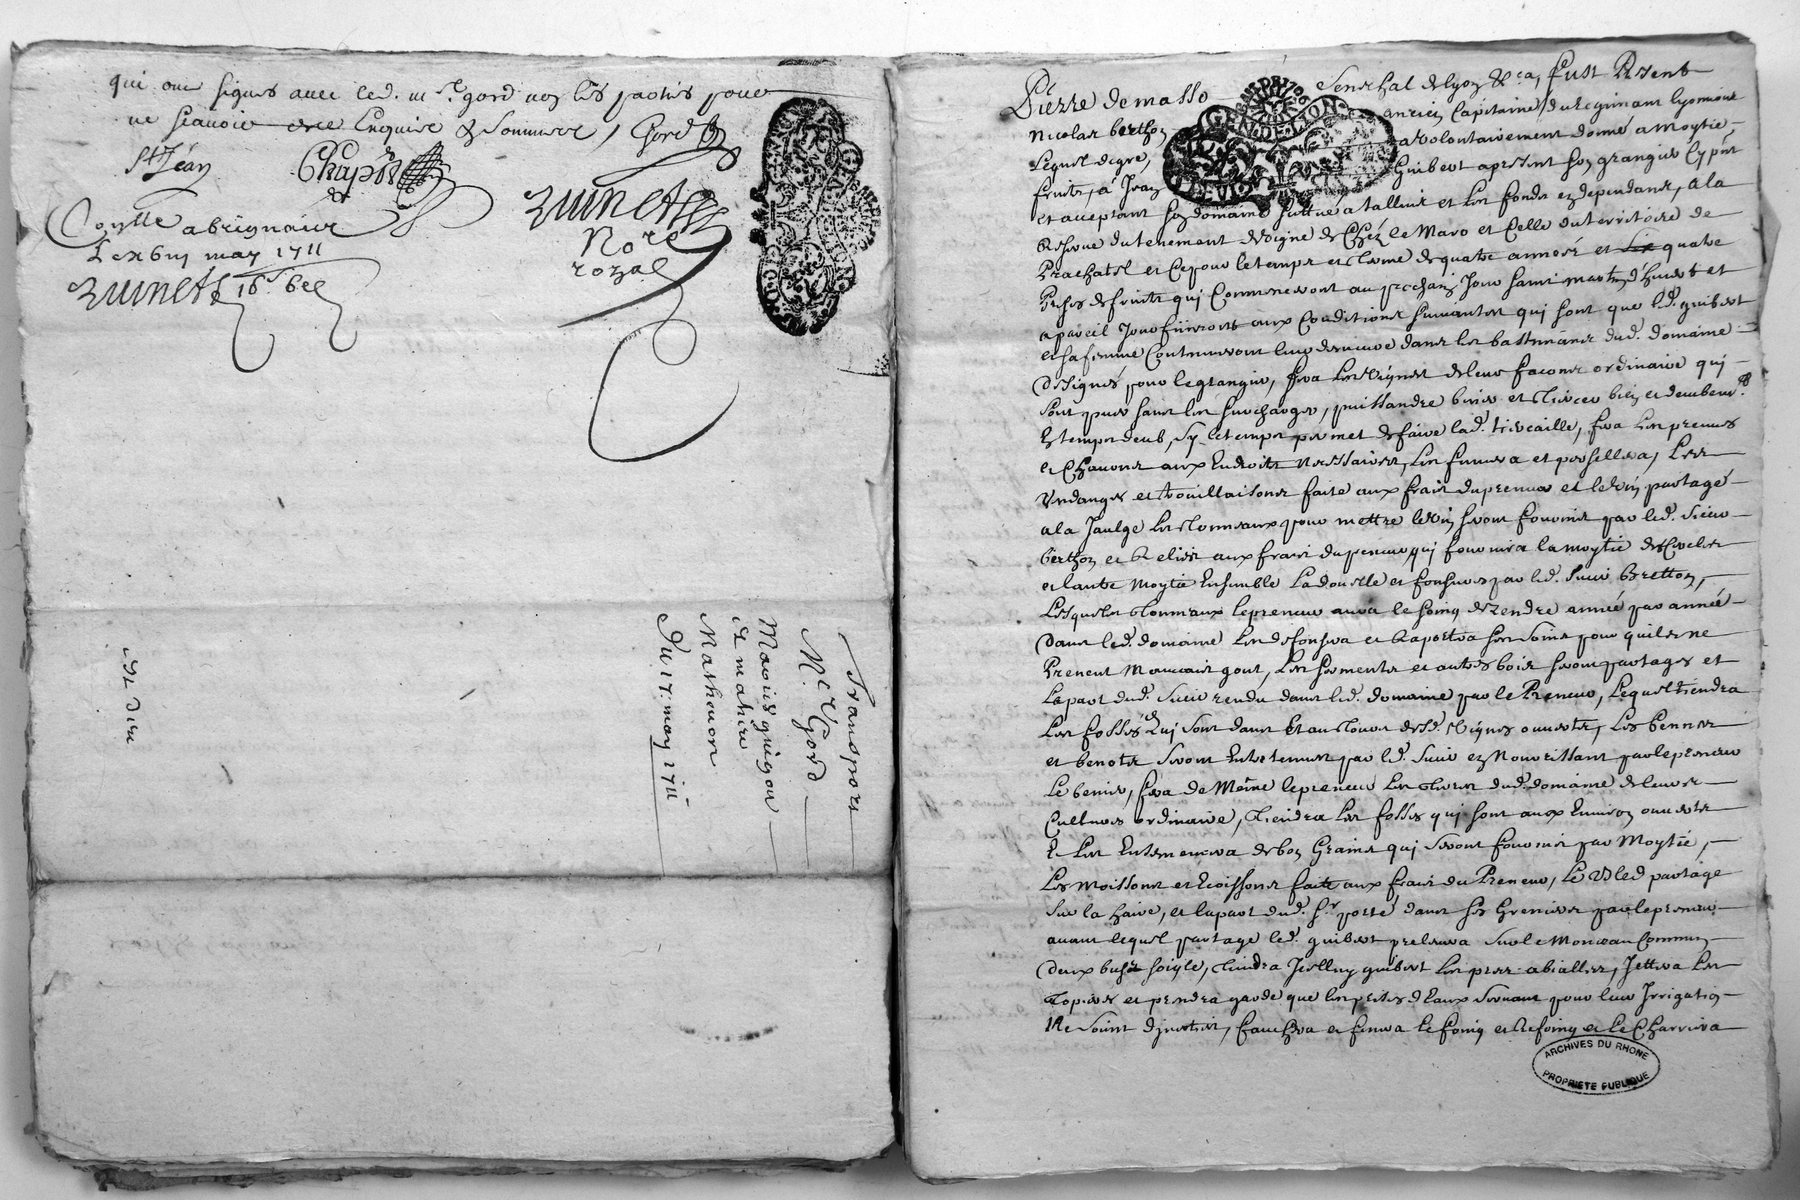 qui ont signes avec led. m.e gord non les parties pour
ne scavoir de ce Enquise & Sommees / Gord
St Jéan
Chap
Zuinet
No.re
rozal
Conttle a brignais
Le may 1711
Zuinet
Transport
M.e Gord
Marie guigou
et mahieu
Matheuon
Du. 17. may 1711
GEN. DE LYON
Pierre de masso Senechal de lyon &.ca, fust Present
Nicolas berthon ancien Capitaine du Regiment lyonnois
Lequel de gre, a volontairement donné a Moytie
fruits, a Jean Guibert a present son grangier Cy p.nt
et acceptant son domaine scittué a talluis et les fonds en dependant, a la
Reserve du tenement de vigne de Chez le Maro et Celle du territoire de
Prachatel et Ce pour le temps et terme de quatre années et six quatre
Prises de fruits qui Commenceront au prochain Jour saint martin d'huict et
a pareil Jour finiront aux Conditions suivantes qui sont que led. guibert
et sa femme Continueront leur demeure dans les bastiments dud. domaine
designés pour le grangier, fera les Vignes de leurs façons ordinaires qui
sont
En temps deub, sy le temps permet de faire lad. tiercaille, fera les preuues
et Chauons aux Endroits necessaires, les fumera et
Vendanges et trouillaisons faite aux frais du preneur et le vin partagé
a la Jaulge les tonneaux pour mettre le vin seront fournis par led. Sieur
berthon et Reliés aux frais du preneur, qui fournira la moytie des Cercles
et lautre Moytie Ensemble La douelle et fonsures par led. Sieur Bretton,
Lesquels tonneaux le preneur aura le soing de rendre année par année
dans led. domaine les defonsera et Raportera ses soins pour quils ne
Prenent Mauvais gout, les serments et autres bois seront partages et
la part dud. Sieur rendu dans led. domaine par le Preneur, Lequel tiendra
les fossés qui sont dans Et au tour desd. Vignes ouverts, Les bennes
et benots seront Entretenus par led. Sieur en Nourrissant par le preneur
Le benier, fera de Même le preneur les terres dud. domaine de leurs
Cultures ordinaire, tiendra les fosses qui sont aux Environ ouverts
Et les Ensemencera de bon Grains qui seront fournis par Moytie,
Les Moissons et Ecoissons faite aux frais du Preneur, Le Bled partagé
Sur la haire, et la part dud. S.r porté dans ses Greniers par le preneur
avant lequel partage led. guibert prelevera sur le Monceau Commun
deux soigle, tiendra Jcelluy guibert les prez abialles, Jettera les
topieres et prendra garde que les prises d'Eaux servant pour leur Jrrigation
Ne soint diverties, fauchera et fenera le foing et Refoing et le Charriera
ARCHIVES DU RHONE
PROPRIETE PUBLIQUE